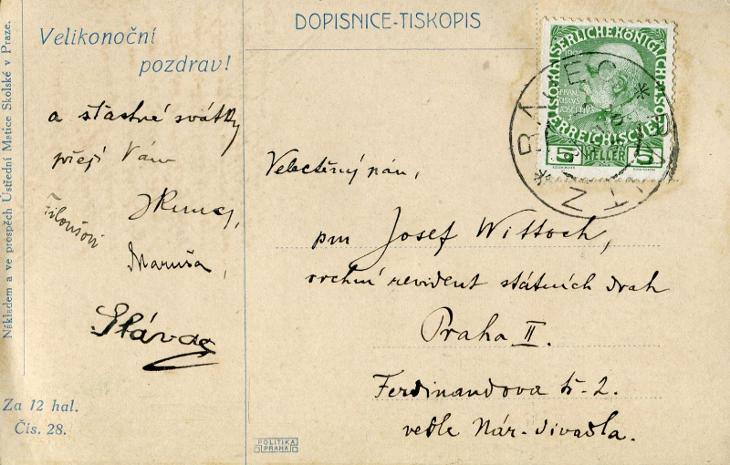 Nákladem a ve prospěch Ústřední Matice Školské v Praze.
Velikonoční
pozdrav!
a šťastné svátky
přejí Vám
Maruša,
Sláva
Za 12 hal.
Čís. 28.
DOPISNICE-TISKOPIS
KAISERLICHE KÖNIGLICHE
ÖSTERREICHISCHE
5 HELLER 5
Velectěný pán,
pan Josef Wittoch,
vrchní revident státních drah
Praha II.
Ferdinandova tř. 2.
vedle Nár. divadla.
POLITIKA
PRAHA